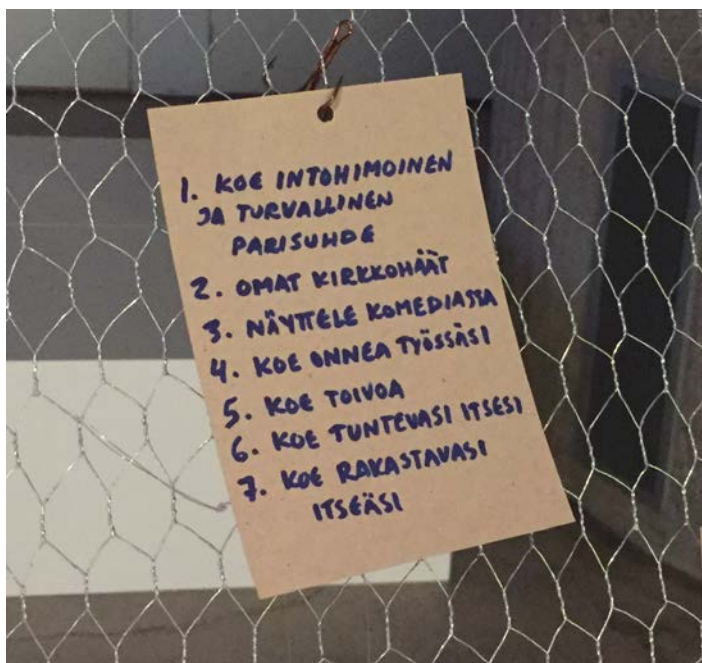 1. KOE INTOHIMOINEN
JA TURVALLINEN
PARISUHDE
2. OMAT KIRKKOHÄÄT
3. NÄYTTELE KOMEDIASSA
4. KOE ONNEA TYÖSSÄSI
5. KOE TOIVOA
6. KOE TUNTEVASI ITSESI
7. KOE RAKASTAVASI
ITSEÄSI